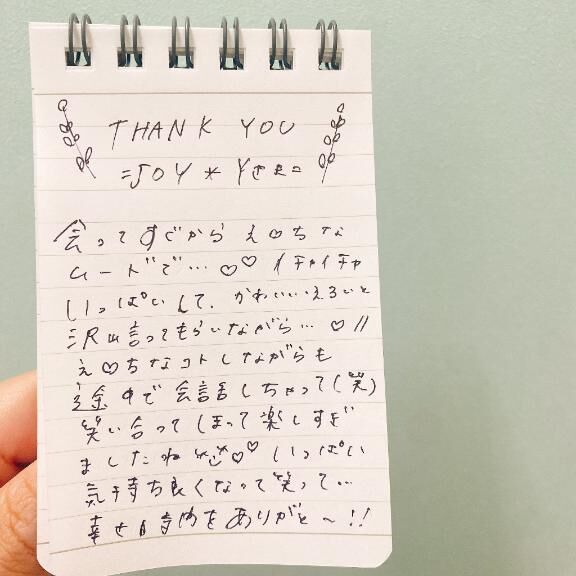 THANK YOU
=JOY * Yさま=
会ってすぐから え♡ちな
ムードで…♡♡ イチャイチャ
いっぱいして、かわいいえろいと
沢山言ってもらいながら…♡//
え♡ちなコトしながらも
途中で会話しちゃって(笑)
笑い合ってしまって楽しすぎ
ましたね♡♡ いっぱい
気持ち良くなって笑って…
幸せ時間をありがと〜!!